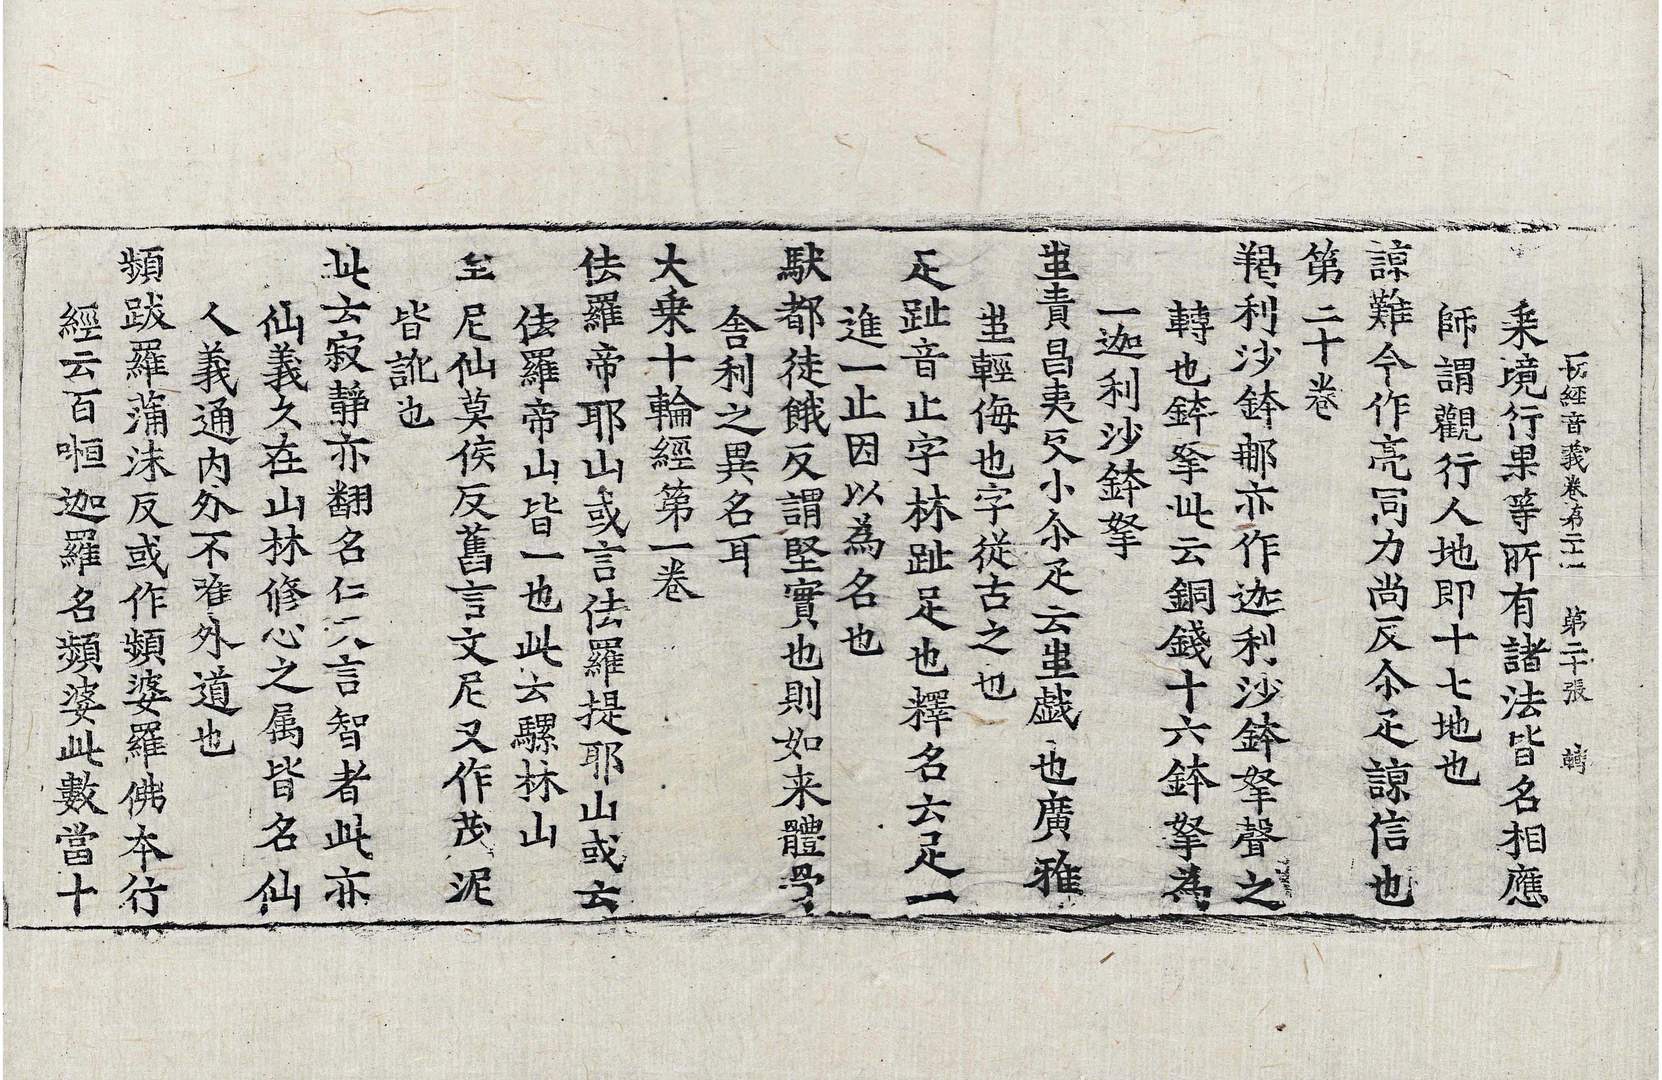 一切經音義卷第二十一 第二十張 轉
乘境行果等所有諸法皆名相應
師謂觀行人地即十七地也
諒難今作亮同力尚反尒疋諒信也
第二十卷
羯利沙鉢那亦作迦利沙鉢拏聲之
轉也鉢拏此云銅錢十六鉢拏為
一迦利沙鉢拏
蚩責昌夷反小尒疋云蚩戲也廣雅
蚩輕侮也字從古之也
足趾音止字林趾足也釋名云足一
進一止因以為名也
駃都徒餓反謂堅實也則如来體骨
舍利之異名耳
大乗十輪經第一卷
佉羅帝耶山或言佉羅提耶山或云
佉羅帝山皆一也此云騾林山
牟尼仙莫侯反舊言文尼又作茂泥
皆訛也
此云寂靜亦翻名仁又言智者此亦
仙義久在山林修心之属皆名仙
人義通内外不唯外道也
頻跋羅蒲沬反或作頻婆羅佛本行
經云百㘁迦羅名頻婆此數當十